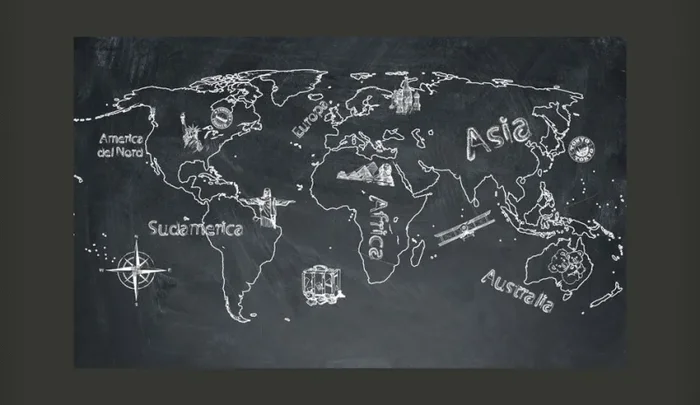 Europa
Asia
America
del Nord
Sudamerica
Africa
Australia